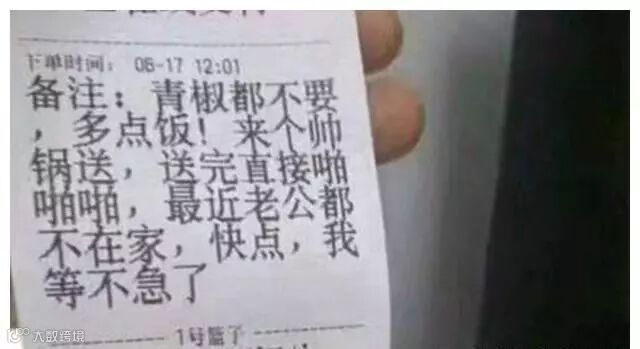 下单时间: 06-17 12:01
备注: 青椒都不要
, 多点饭! 来个帅
锅送, 送完直接啪
啪啪, 最近老公都
不在家, 快点, 我
等不急了
1号篮子
大数跨境